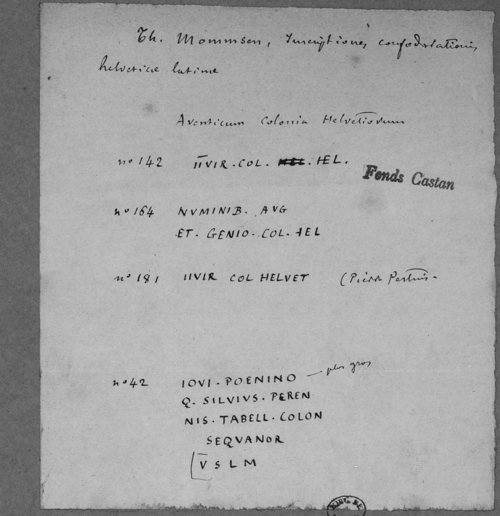 Th. Mommsen, Inscriptiones confoederationis
helveticae latinae
Aventicum Colonia Helvetiorum
nº 142 IIVIR. COL. HEL.
Fonds Castan
nº 164 NVMINIB. AVG
ET. GENIO. COL. HEL
nº 181 IIVIR COL HELVET (Pierre Pertuis.
nº 42 IOVI. POENINO — plus gros
Q. SILVIVS. PEREN
NIS. TABELL. COLON
SEQVANOR
V S L M